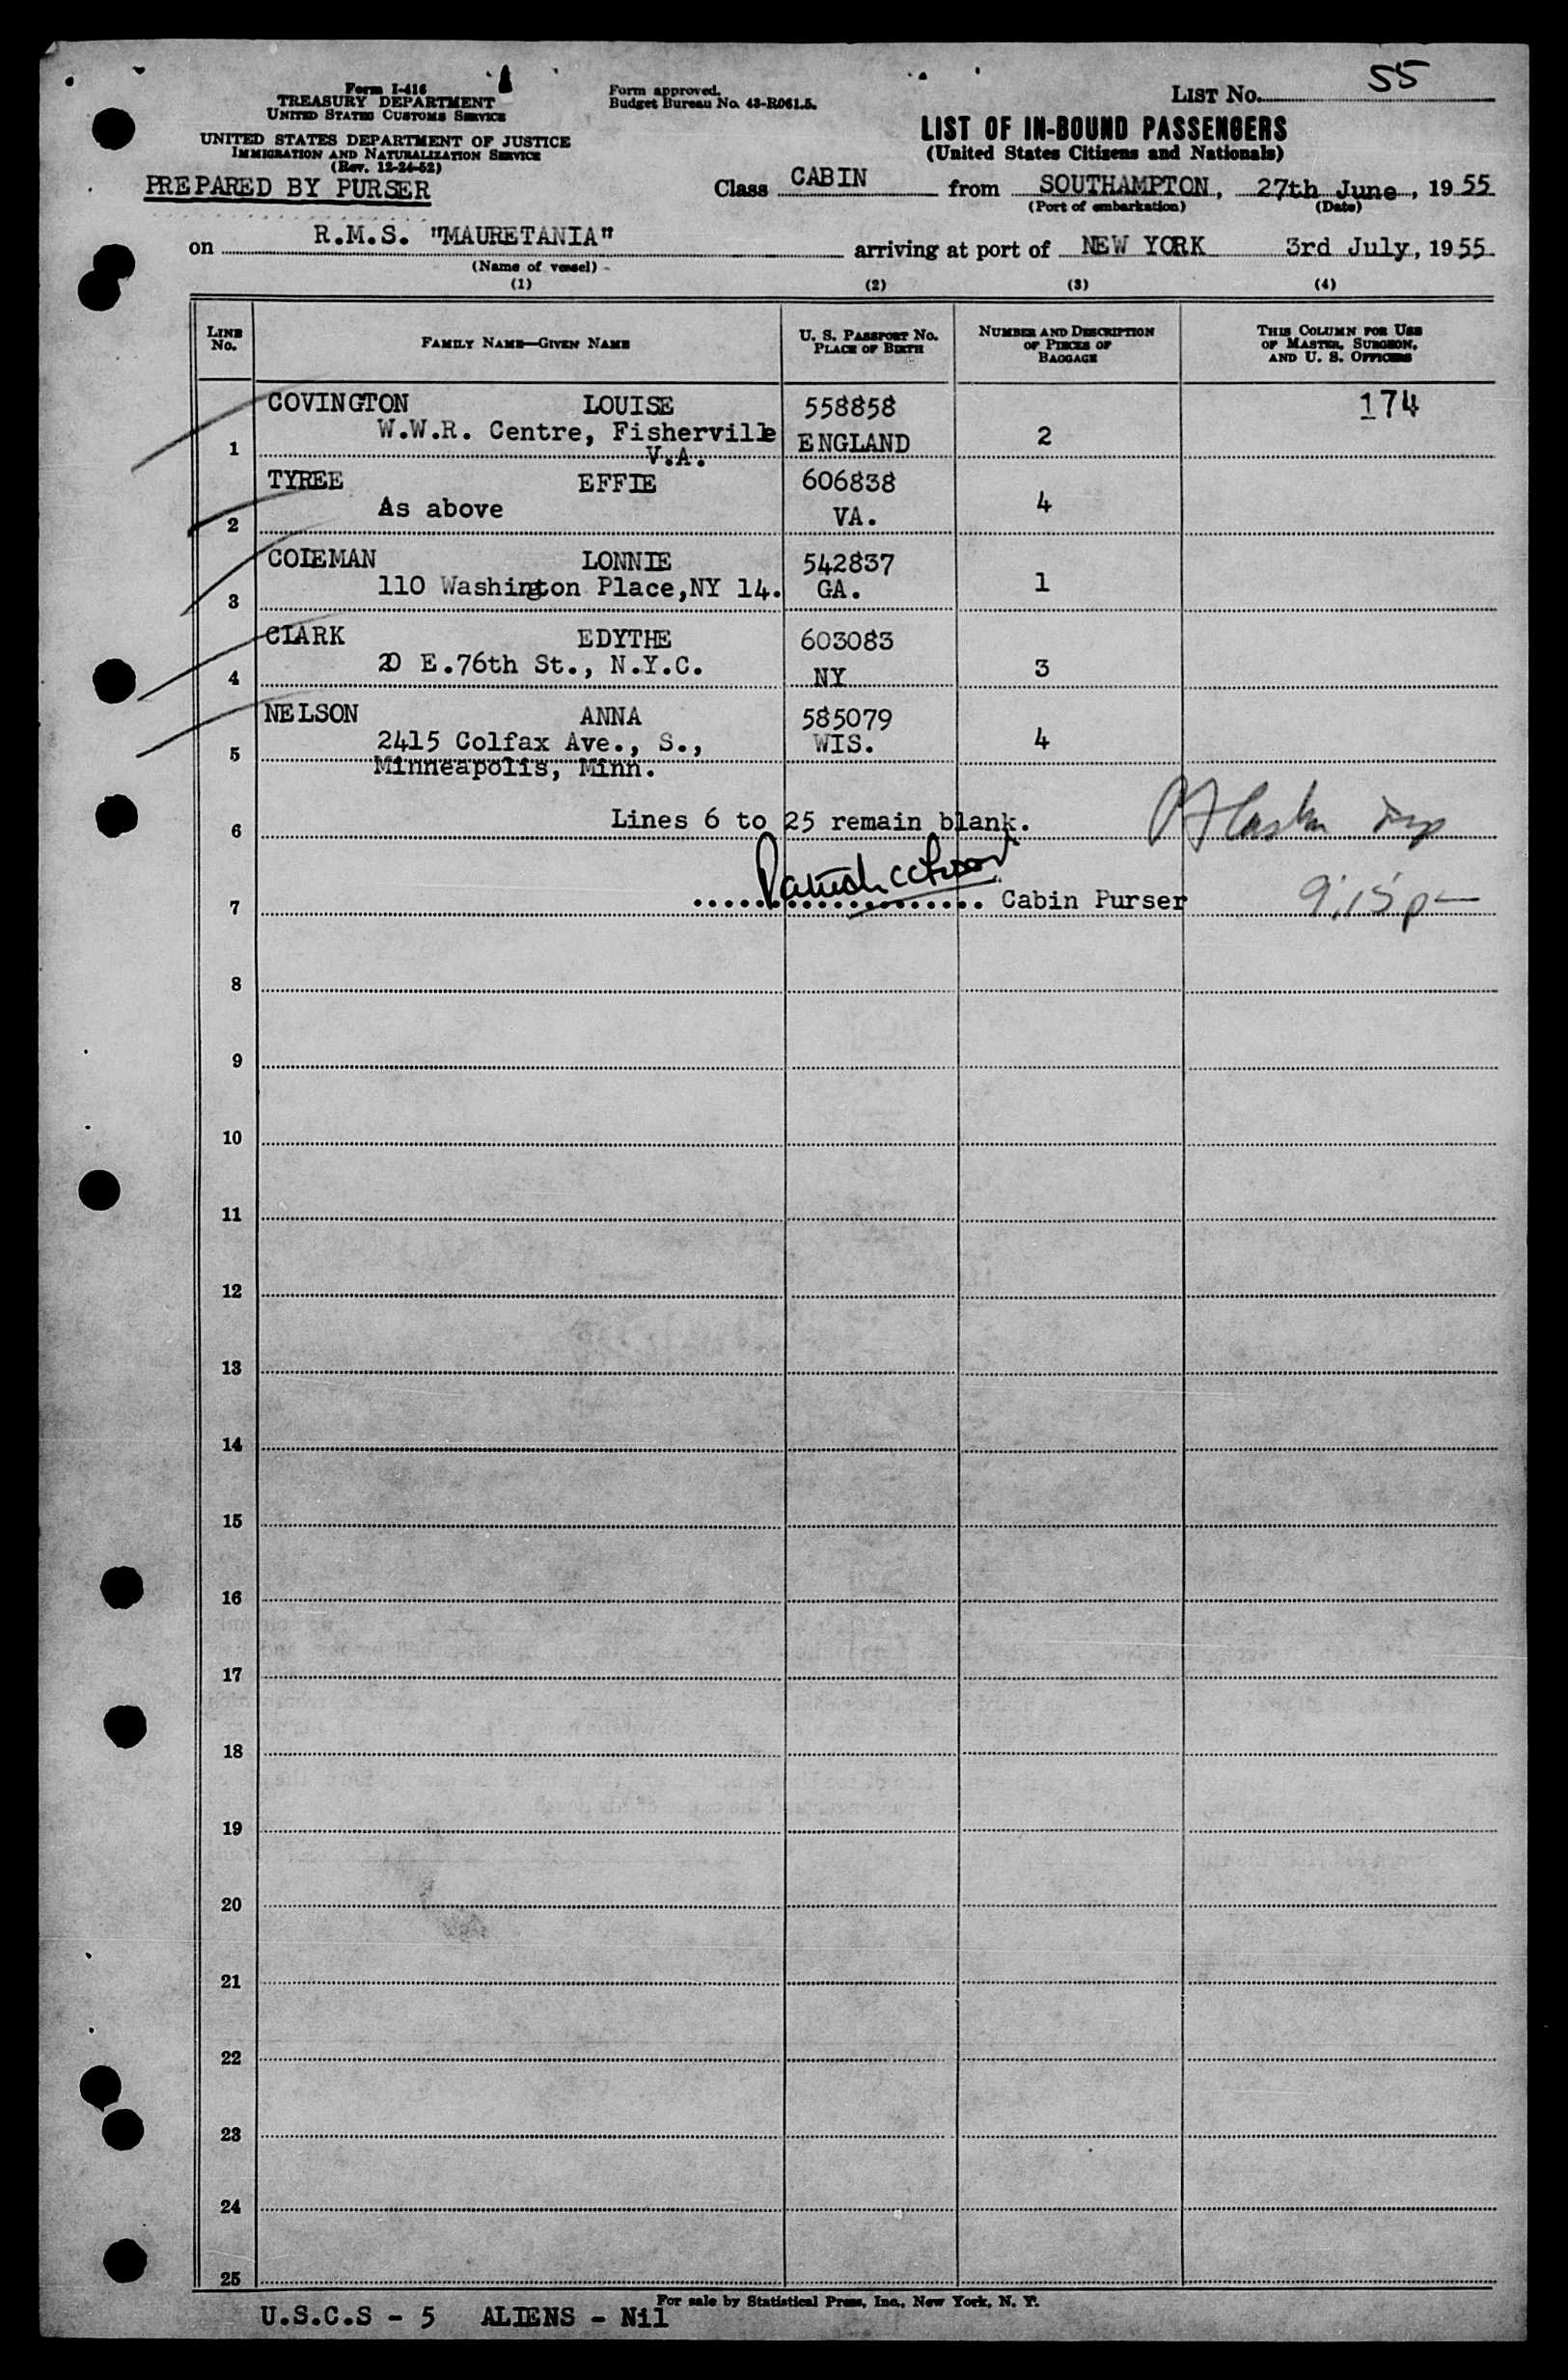 Form I-416
TREASURY DEPARTMENT
UNITED STATES CUSTOMS SERVICE
UNITED STATES DEPARTMENT OF JUSTICE
IMMIGRATION AND NATURALIZATION SERVICE
(Rev. 12-24-52)
PREPARED BY PURSER
Form approved.
Budget Bureau No. 43-R061.5.
LIST No. 55
LIST OF IN-BOUND PASSENGERS
(United States Citizens and Nationals)
Class CABIN from SOUTHAMPTON, 27th June, 1955
(Port of embarkation) (Date)
on R.M.S. "MAURETANIA" arriving at port of NEW YORK 3rd July, 1955
(Name of vessel)
(1) (2) (3) (4)
LINE No. FAMILY NAME—GIVEN NAME U. S. PASSPORT No. PLACE OF BIRTH NUMBER AND DESCRIPTION OF PIECES OF BAGGAGE THIS COLUMN FOR USE OF MASTER, SURGEON, AND U. S. OFFICERS
COVINGTON LOUISE 558858 174
W.W.R. Centre, Fisherville
1 V.A. ENGLAND 2
TYREE EFFIE 606838
2 As above VA. 4
COLEMAN LONNIE 542837
3 110 Washington Place,NY 14. GA. 1
CLARK EDYTHE 603083
4 20 E.76th St., N.Y.C. NY 3
NELSON ANNA 585079
5 2415 Colfax Ave., S., WIS. 4
Minneapolis, Minn.
6 Lines 6 to 25 remain blank.
7 Cabin Purser 9:15 p
8
9
10
11
12
13
14
15
16
17
18
19
20
21
22
23
24
25
For sale by Statistical Press, Inc., New York, N. Y.
U.S.C.S - 5 ALIENS - Nil